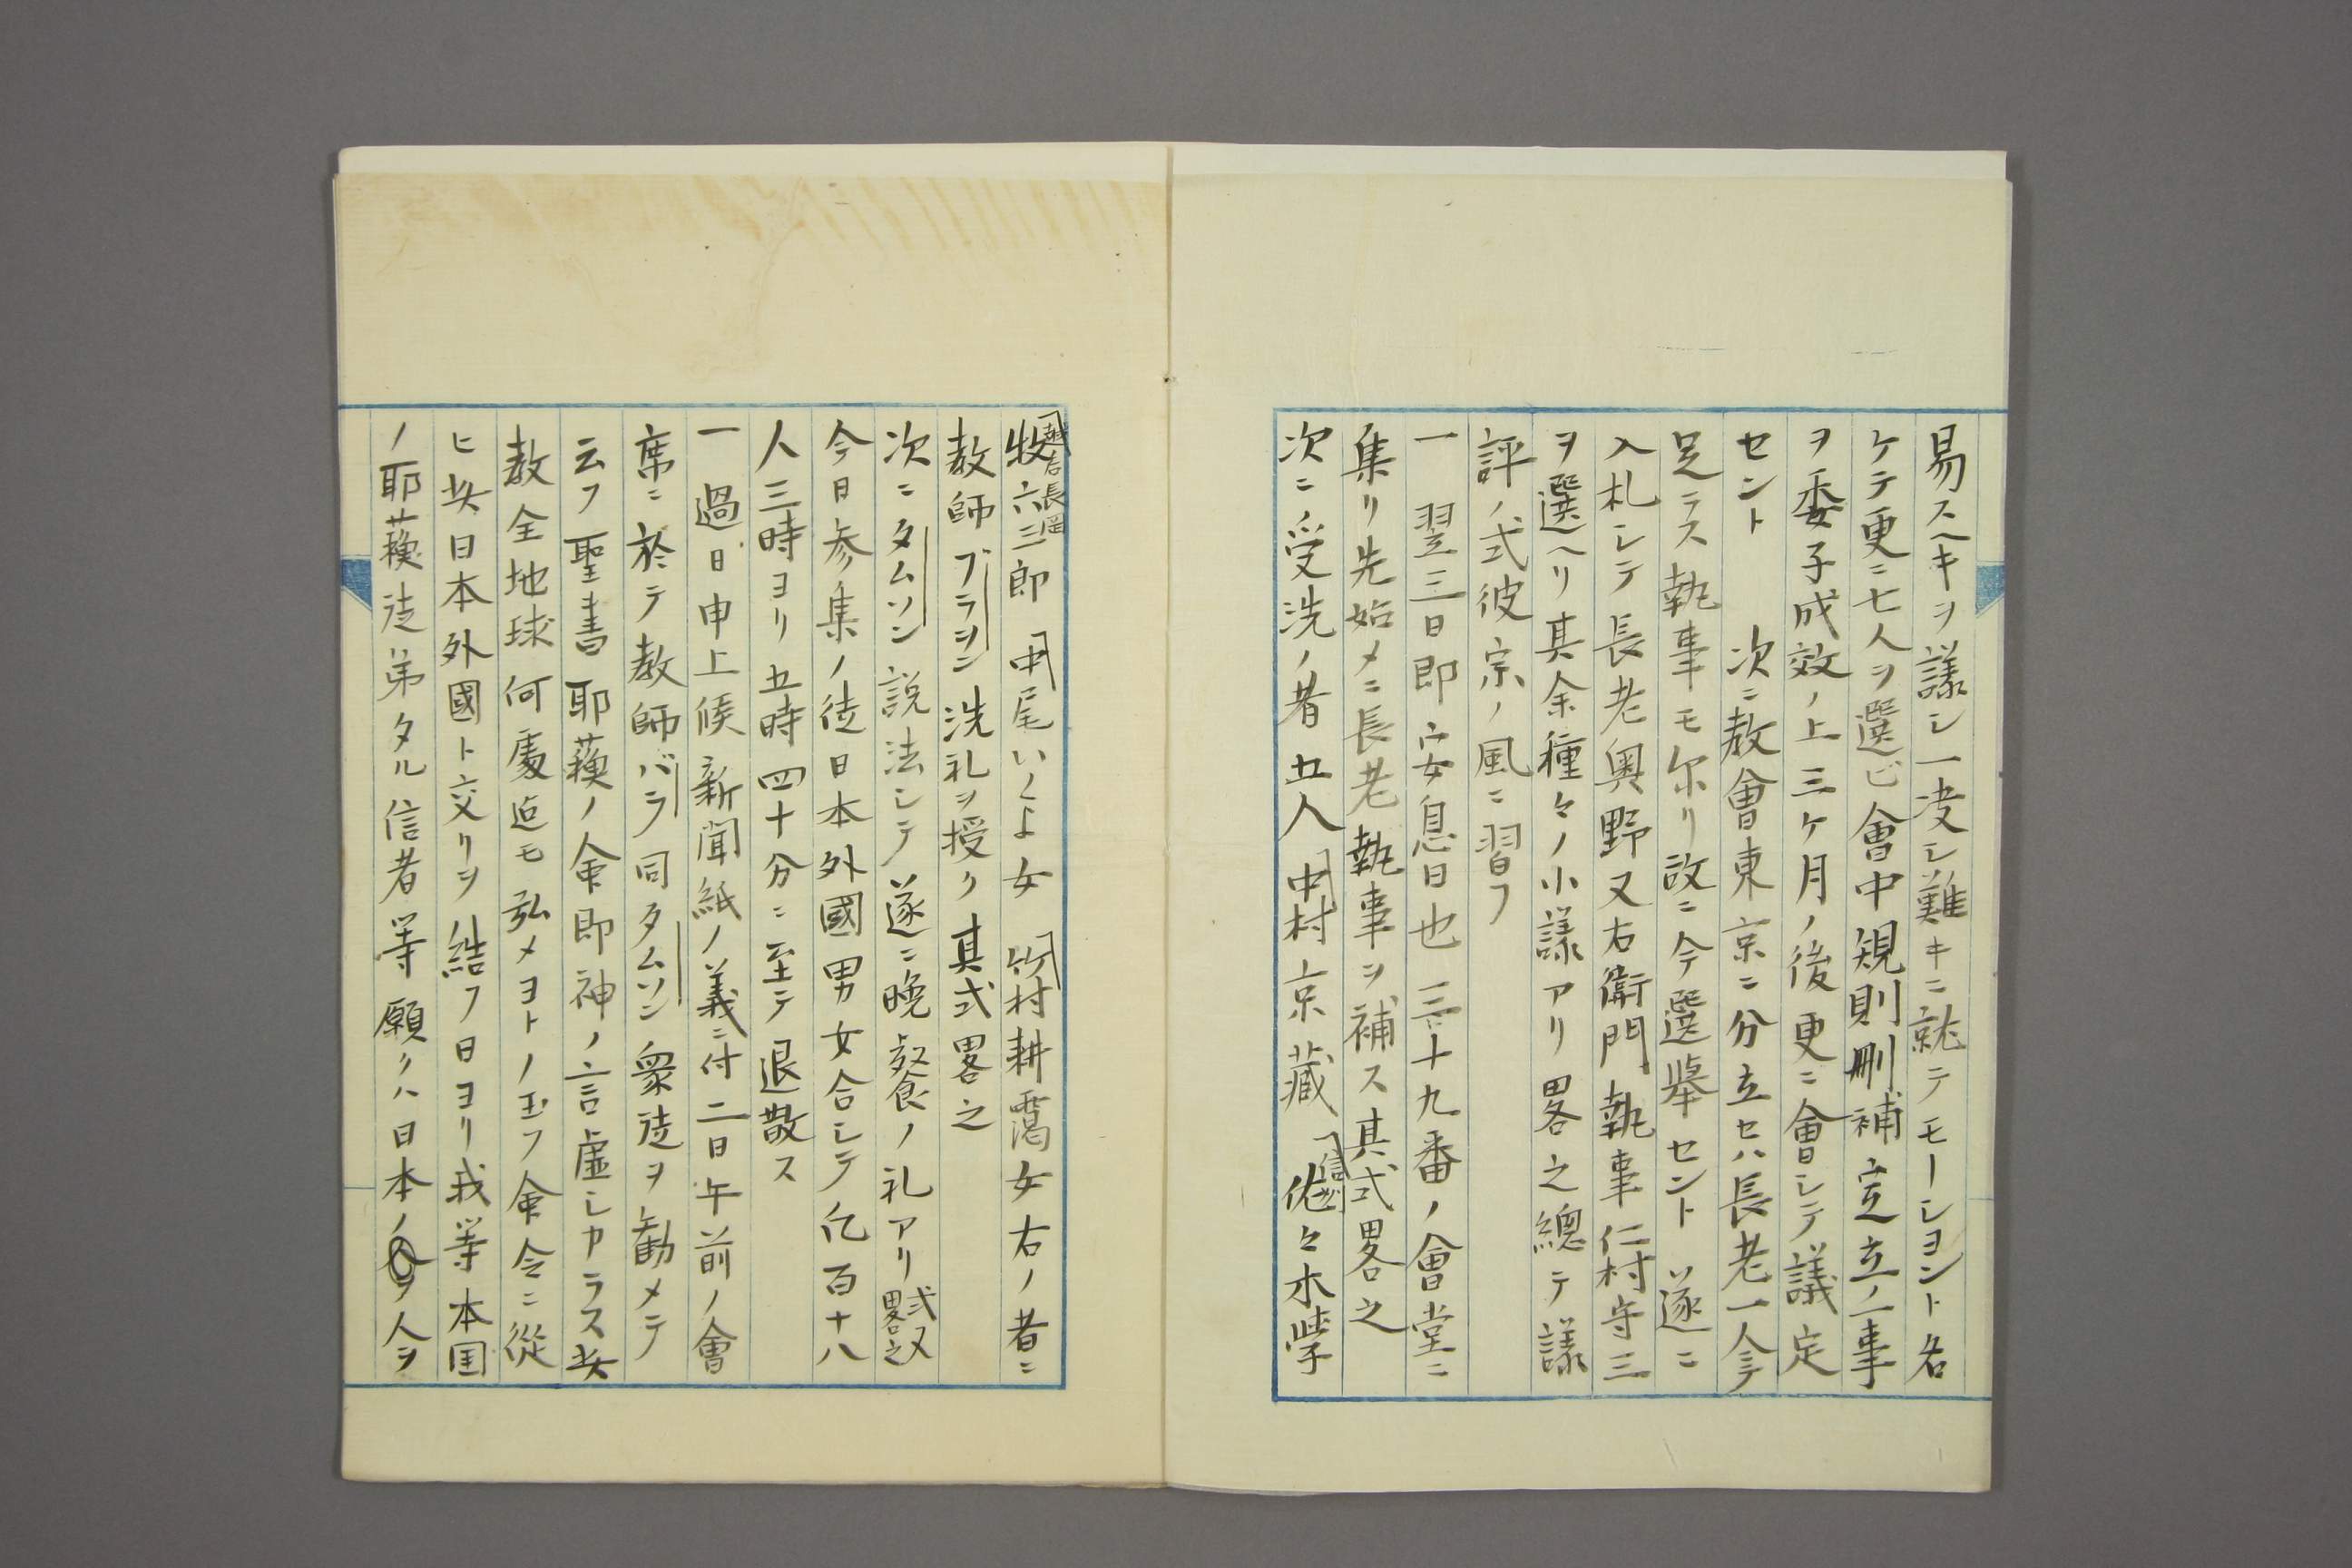 易スヘキヲ議シ一决シ難キニ就テモーションㇳ名
ケテ更ニ七人ヲ選ビ會中規則刪補定立ノ事
ヲ委子成效ノ上三ケ月ノ後更ニ會シテ議定
セント　次ニ教會東京ニ分立セハ長老一人ニテ
足ラス執事モ尓リ故ニ今選擧セント遂ニ
入札シテ長老奥野又右衛門執事仁村守三
ヲ選ヘリ其余種々ノ小議アリ畧之總テ議
評ノ式彼宗ノ風ニ習フ
一　翌三日即安息日也三十九番ノ會堂ニ
集リ先始メニ長老執事ヲ補ス其式畧之
次ニ受洗ノ者五人中村京藏 信州 佐々木學
長岡 牧六三郎　中尾いくよ女　竹村耕靄女右ノ者ニ
教師ブラヲン洗礼ヲ授ク其式畧之
次ニタムソン説法シテ遂ニ晩餐ノ礼アリ式又畧之
今日参集ノ徒日本外國男女合シテ凡百十八
人三時ヨリ五時四十分ニ至テ退散ス
一　過日申上候新聞紙ノ義ニ付二日午前ノ會
席ニ於テ教師バラ同タムソン衆徒ヲ勸メテ
云フ聖書耶蘓ノ命即神ノ言虚シカラス夫
教全地球何處迄モ弘メヨトノ玉フ命令ニ從
ヒ夫日本外國ト交リヲ結フ日ヨリ我等本国
ノ耶蘓徒弟タル信者等願クハ日本ノ人ヲ